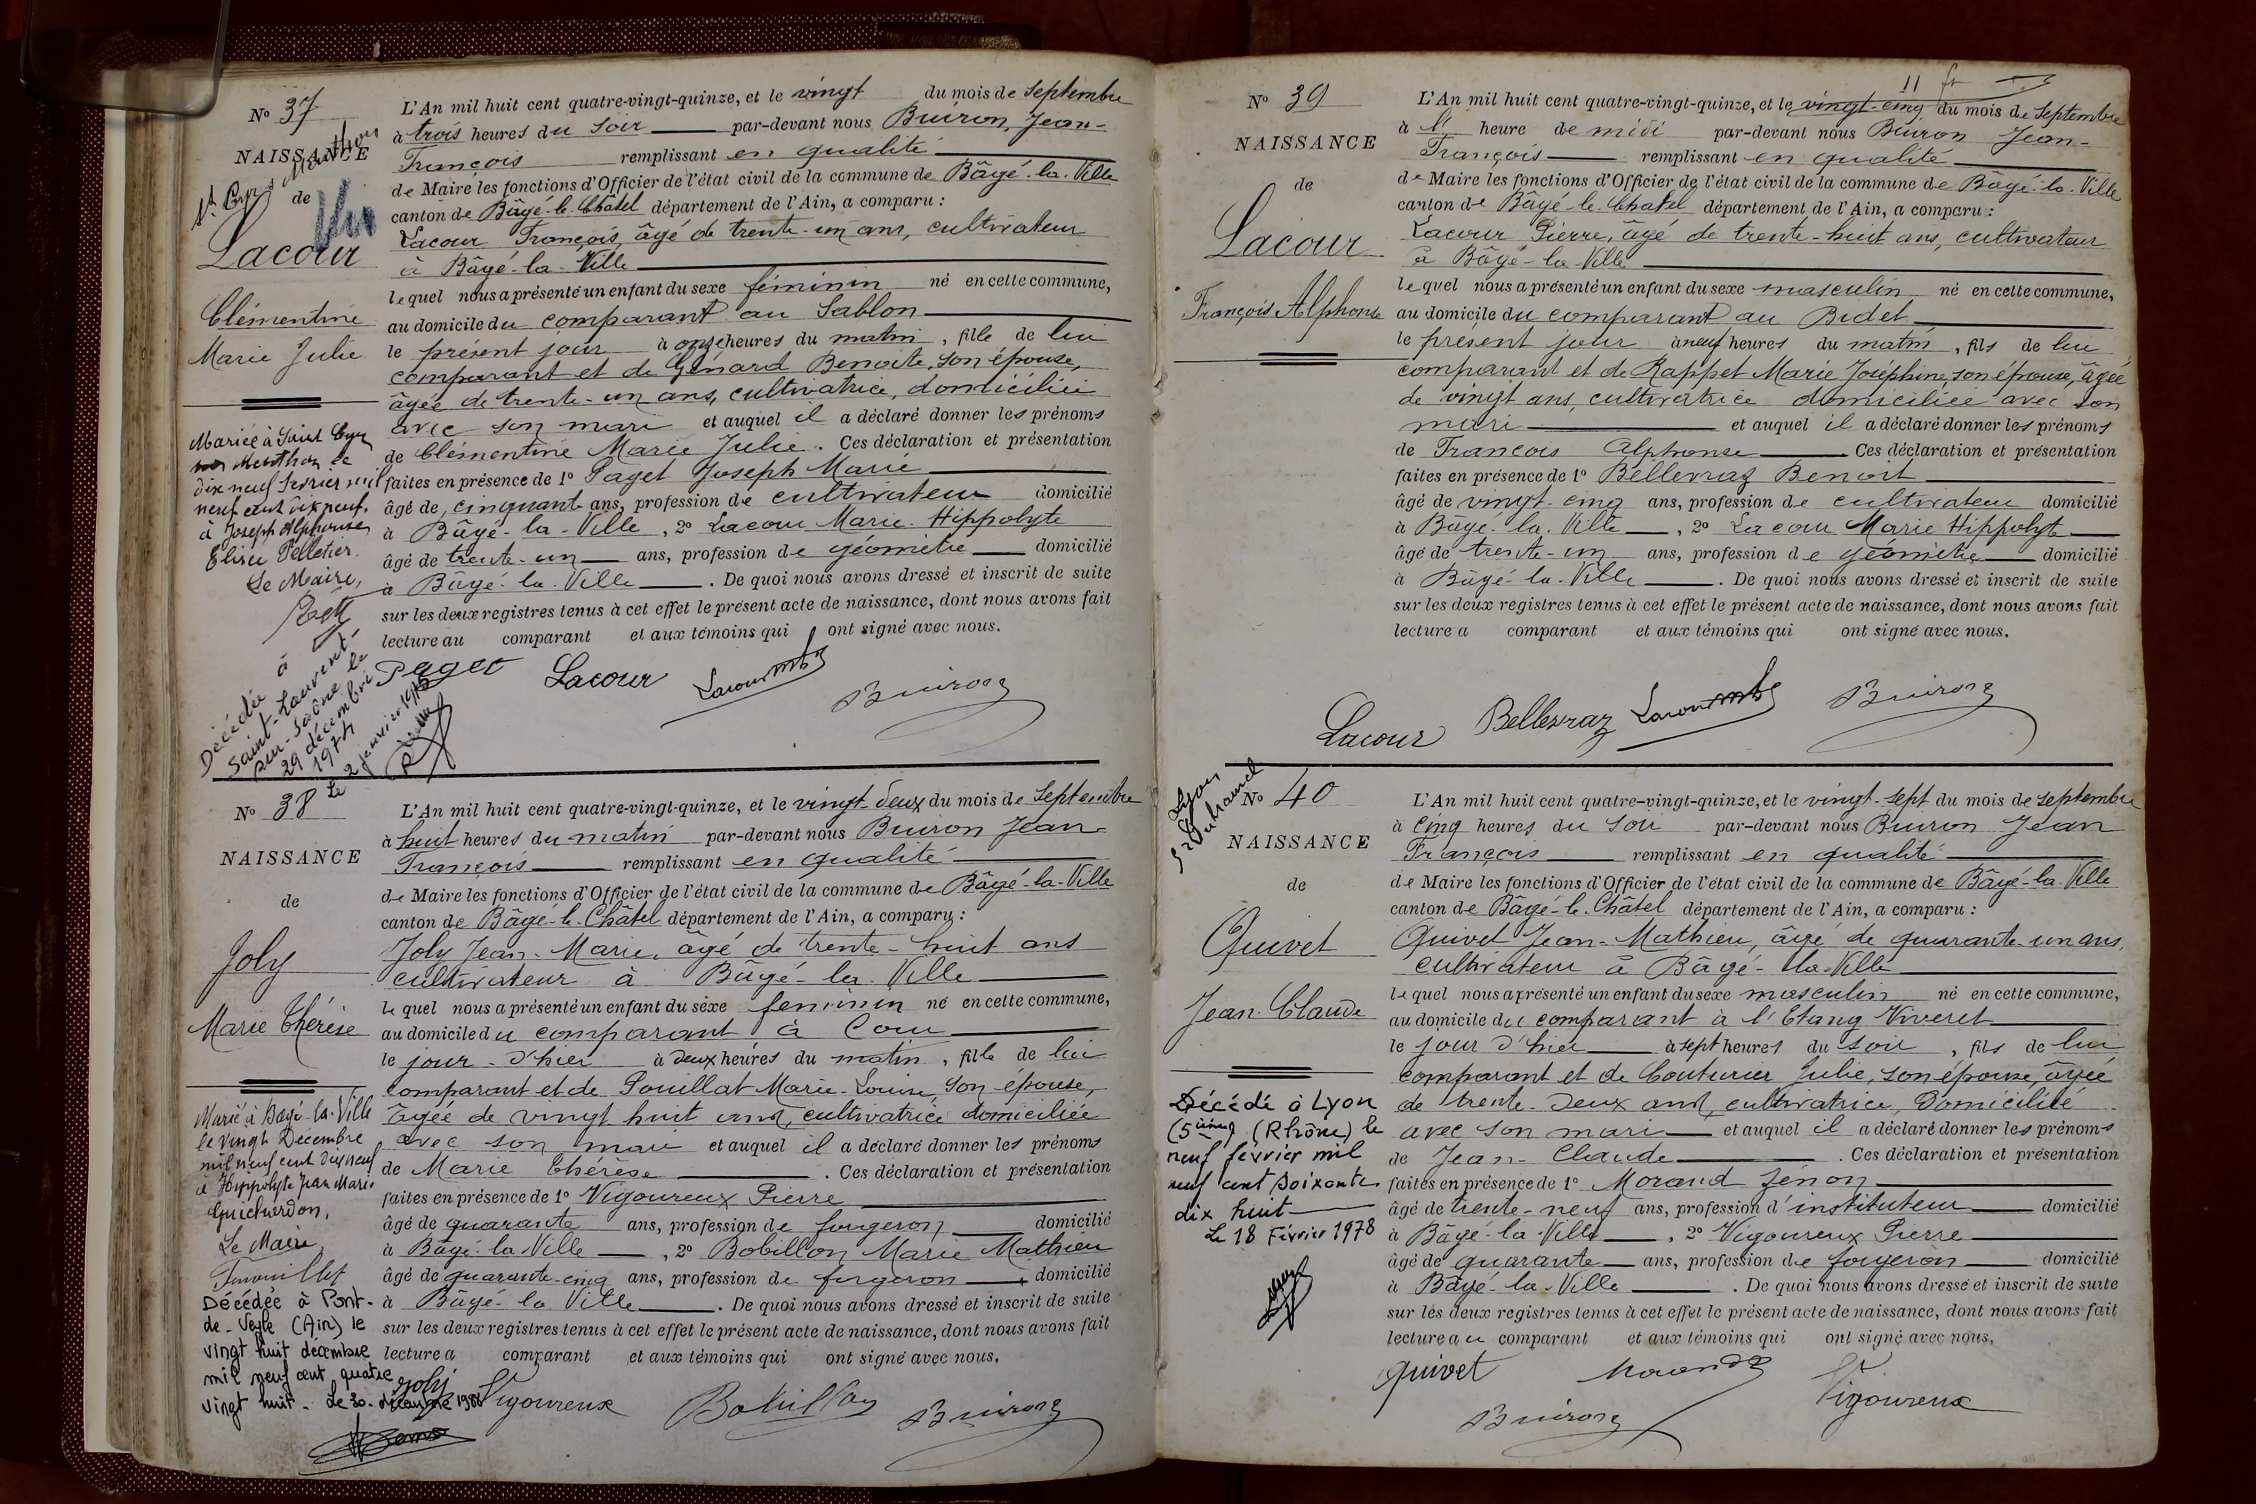 N° 37
NAISSANCE
de
Lacour
Clémentine
Marie Julie
Mariée à Saint Cyr
Menthon le
dix neuf février mil
neuf cent dix neuf
à Joseph Alphonse
Elisée Pelletier
Le Maire,
Décédée à
Saint-Laurent-
sur-Saône le
29 décembre
1974
Le 2 janvier 1975
L'An mil huit cent quatre-vingt-quinze, et le vingt du mois de Septembre
à trois heures du soir par-devant nous Buiron, Jean-
François remplissant en qualité
de Maire les fonctions d'Officier de l'état civil de la commune de Bâgé-la-Ville
canton de Bâgé-le-Châtel département de l'Ain, a comparu :
Lacour François, âgé de trente-un ans, cultivateur
à Bâgé-la-Ville
lequel nous a présenté un enfant du sexe féminin né en cette commune,
au domicile du comparant au Sablon
le présent jour à onze heures du matin, fille de lui
comparant et de Génard Benoite, son épouse,
âgée de trente-un ans, cultivatrice, domiciliée
avec son mari et auquel il a déclaré donner les prénoms
de Clémentine Marie Julie. Ces déclaration et présentation
faites en présence de 1° Paget Joseph Marie
âgé de cinquante ans, profession de cultivateur domicilié
à Bâgé-la-Ville, 2° Lacour Marie-Hippolyte
âgé de trente-un ans, profession de géomètre domicilié
à Bâgé-la-Ville. De quoi nous avons dressé et inscrit de suite
sur les deux registres tenus à cet effet le présent acte de naissance, dont nous avons fait
lecture au comparant et aux témoins qui ont signé avec nous.
Paget Lacour Lacour Buiron
N° 38
NAISSANCE
de
Joly
Marie Thérèse
Marié à Bagé-la-Ville
le vingt Décembre
mil neuf cent dix neuf
à Hippolyte Jean Marie
Guicherdon,
Le Maire,
Décédée à Pont-
de-Veyle (Ain) le
vingt huit décembre
mil neuf cent quatre
vingt huit. Le 30 décembre 1988
L'An mil huit cent quatre-vingt-quinze, et le vingt-deux du mois de Septembre
à huit heures du matin par-devant nous Buiron Jean-
François remplissant en qualité
de Maire les fonctions d'Officier de l'état civil de la commune de Bâgé-la-Ville
canton de Bâgé-le-Châtel département de l'Ain, a comparu :
Joly Jean-Marie, âgé de trente-huit ans
cultivateur à Bâgé-la-Ville
lequel nous a présenté un enfant du sexe féminin né en cette commune,
au domicile du comparant à Cour
le jour d'hier à deux heures du matin, fille de lui
comparant et de Pouillat Marie-Louise, son épouse,
âgée de vingt huit ans, cultivatrice domiciliée
avec son mari et auquel il a déclaré donner les prénoms
de Marie Thérèse. Ces déclaration et présentation
faites en présence de 1° Vigoureux Pierre
âgé de quarante ans, profession de forgeron domicilié
à Bâgé-la-Ville, 2° Bobillon Marie Mathieu
âgé de quarante-cinq ans, profession de forgeron, domicilié
à Bâgé-la-Ville. De quoi nous avons dressé et inscrit de suite
sur les deux registres tenus à cet effet le présent acte de naissance, dont nous avons fait
lecture a comparant et aux témoins qui ont signé avec nous.
Joly Vigoureux Bobillon Buiron
11
N° 39
NAISSANCE
de
Lacour
François Alphonse
L'An mil huit cent quatre-vingt-quinze, et le vingt-cinq du mois de Septembre
à heure de midi par-devant nous Buiron Jean-
François remplissant en qualité
de Maire les fonctions d'Officier de l'état civil de la commune de Bâgé-la-Ville
canton de Bâgé-le-Chatel département de l'Ain, a comparu :
Lacour Pierre, âgé de trente-huit ans, cultivateur
à Bâgé-la-Ville
lequel nous a présenté un enfant du sexe masculin né en cette commune,
au domicile du comparant au Bidet
le présent jour à neuf heures du matin, fils de lui
comparant et de Rappet Marie Joséphine, son épouse, âgée
de vingt ans, cultivatrice domiciliée avec son
mari et auquel il a déclaré donner les prénoms
de François Alphonse Ces déclaration et présentation
faites en présence de 1° Bellevraz Benoit
âgé de vingt-cinq ans, profession de cultivateur domicilié
à Bâgé-la-Ville, 2° Lacour Marie Hippolyte
âgé de trente-un ans, profession de géomètre domicilié
à Bâgé-la-Ville. De quoi nous avons dressé et inscrit de suite
sur les deux registres tenus à cet effet le présent acte de naissance, dont nous avons fait
lecture a comparant et aux témoins qui ont signé avec nous.
Lacour Bellevraz Lacour Buiron
N° 40
NAISSANCE
de
Quivet
Jean-Claude
Décédé à Lyon
(5ième) (Rhône) le
neuf février mil
neuf cent soixante
dix huit
Le 18 Février 1978
L'An mil huit cent quatre-vingt-quinze, et le vingt-sept du mois de septembre
à cinq heures du soir par-devant nous Buiron Jean
François remplissant en qualité
de Maire les fonctions d'Officier de l'état civil de la commune de Bâgé-la-Ville
canton de Bâgé-le-Châtel département de l'Ain, a comparu :
Quivet Jean-Mathieu, âgé de quarante-un ans,
cultivateur à Bâgé-la-Ville
lequel nous a présenté un enfant du sexe masculin né en cette commune,
au domicile du comparant à l'Etang Viveret
le jour d'hier à sept heures du soir, fils de lui
comparant et de Couturier Julie, son épouse, âgée
de trente-deux ans, cultivatrice, domiciliée
avec son mari et auquel il a déclaré donner les prénoms
de Jean-Claude. Ces déclaration et présentation
faites en présence de 1° Morand Zénon
âgé de trente-neuf ans, profession d'instituteur domicilié
à Bâgé-la-Ville, 2° Vigoureux Pierre
âgé de quarante ans, profession de forgeron domicilié
à Bâgé-la-Ville. De quoi nous avons dressé et inscrit de suite
sur les deux registres tenus à cet effet le présent acte de naissance, dont nous avons fait
lecture au comparant et aux témoins qui ont signé avec nous.
Quivet Morand Vigoureux
Buiron